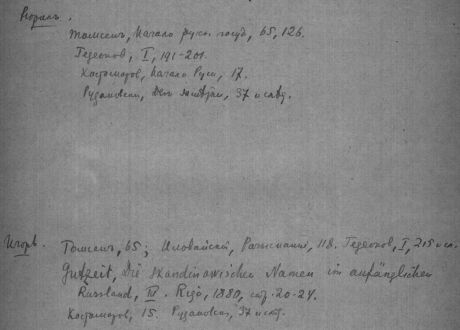 Рюрикъ.
Томсенъ, Начало русск. госуд., 65, 126.
Гедеоновъ, I, 191-201.
Костомаровъ, Начало Руси, 17.
37 и слѣд.
Игорь. Томсенъ, 65; Иловайскій, Разысканія, 118. Гедеоновъ, I, 215 и сл.
Gutzeit, Die skandinawischen Namen im anfänglichen
Russland, IV. Riga, 1880, стр. 20-24.
Костомаровъ, 15. 37 и слѣд.